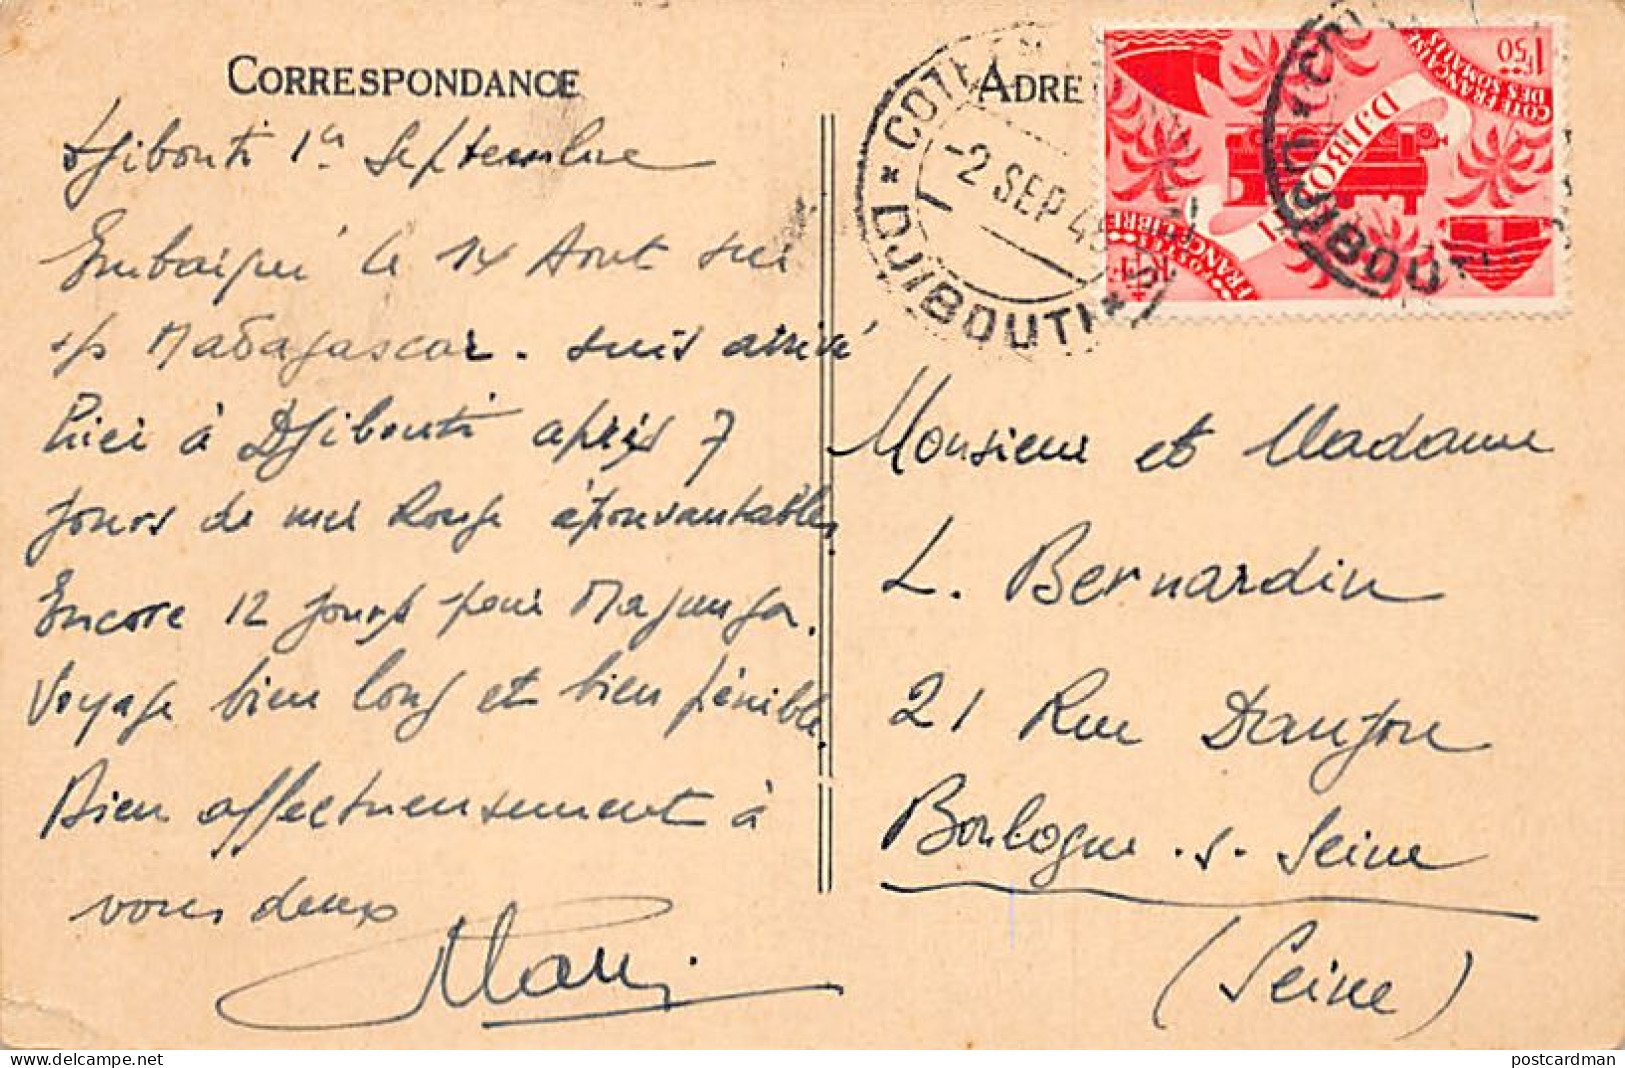 CORRESPONDANCE
Djibouti 1er Septembre
Embarqué le 14 Aout sur
s/s Madagascar. suis arrivé
hier à Djibouti après 7
jours de mer Rouge épouvantables,
Encore 12 jours pour Majunga.
Voyage bien long et bien pénible.
Bien affectueusement à
vous deux
ADRE
COTE
DJIBOUTI
-2 SEP 4
1F50
COTE FRANÇAISE
DES SOMALIS
DJIBOUTI
POSTES
FRANCE LIBRE
DJIBOUTI
Monsieur et Madame
L. Bernardin
21 Rue Danjou
Boulogne.s.Seine
(Seine)
postcardman